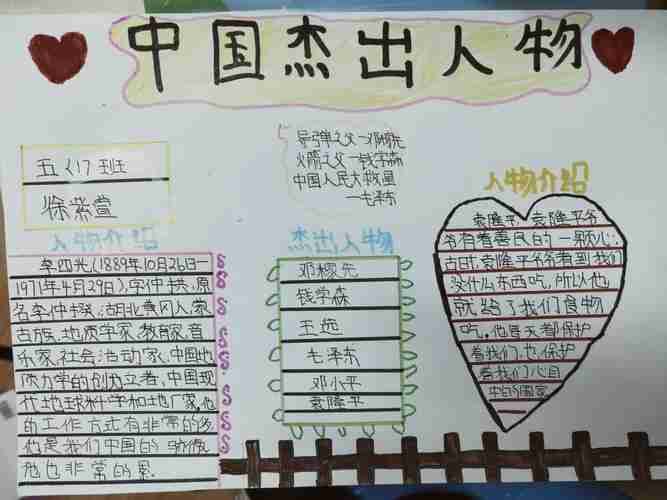 中国杰出人物
五〈1〉班
徐紫萱
导弹之父一邓稼先
火箭之父一钱学森
中国人民大救星
一毛泽东
人物介绍
李四光(1889年10月26日一
1971年4月29日),字仲拱,原
名李仲揆,湖北黄冈人,蒙
古族,地质学家,教育家,音
乐家,社会活动家,中国地
质力学的创立者,中国现
代地球科学和地厂家,他
的工作方式有非常的多
他是我们中国的骄傲
他也非常的累.
杰出人物
邓稼先
钱学森
王选
毛泽东
邓小平
袁隆平
人物介绍
袁隆平,袁隆平爷
爷有着善良的一颗心:
古时,袁隆平爷爷看到我们
没什么东西吃,所以他,
就给了我们食物
吃,他每天都保护
着我们,也保护
着我们心目
中的国家